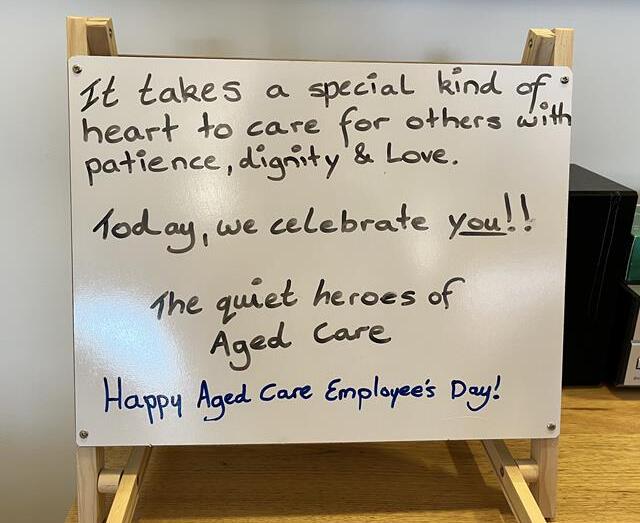 It takes a special kind of
heart to care for others with
patience, dignity & Love.
Today, we celebrate you!!
The quiet heroes of
Aged Care
Happy Aged Care Employee's Day!